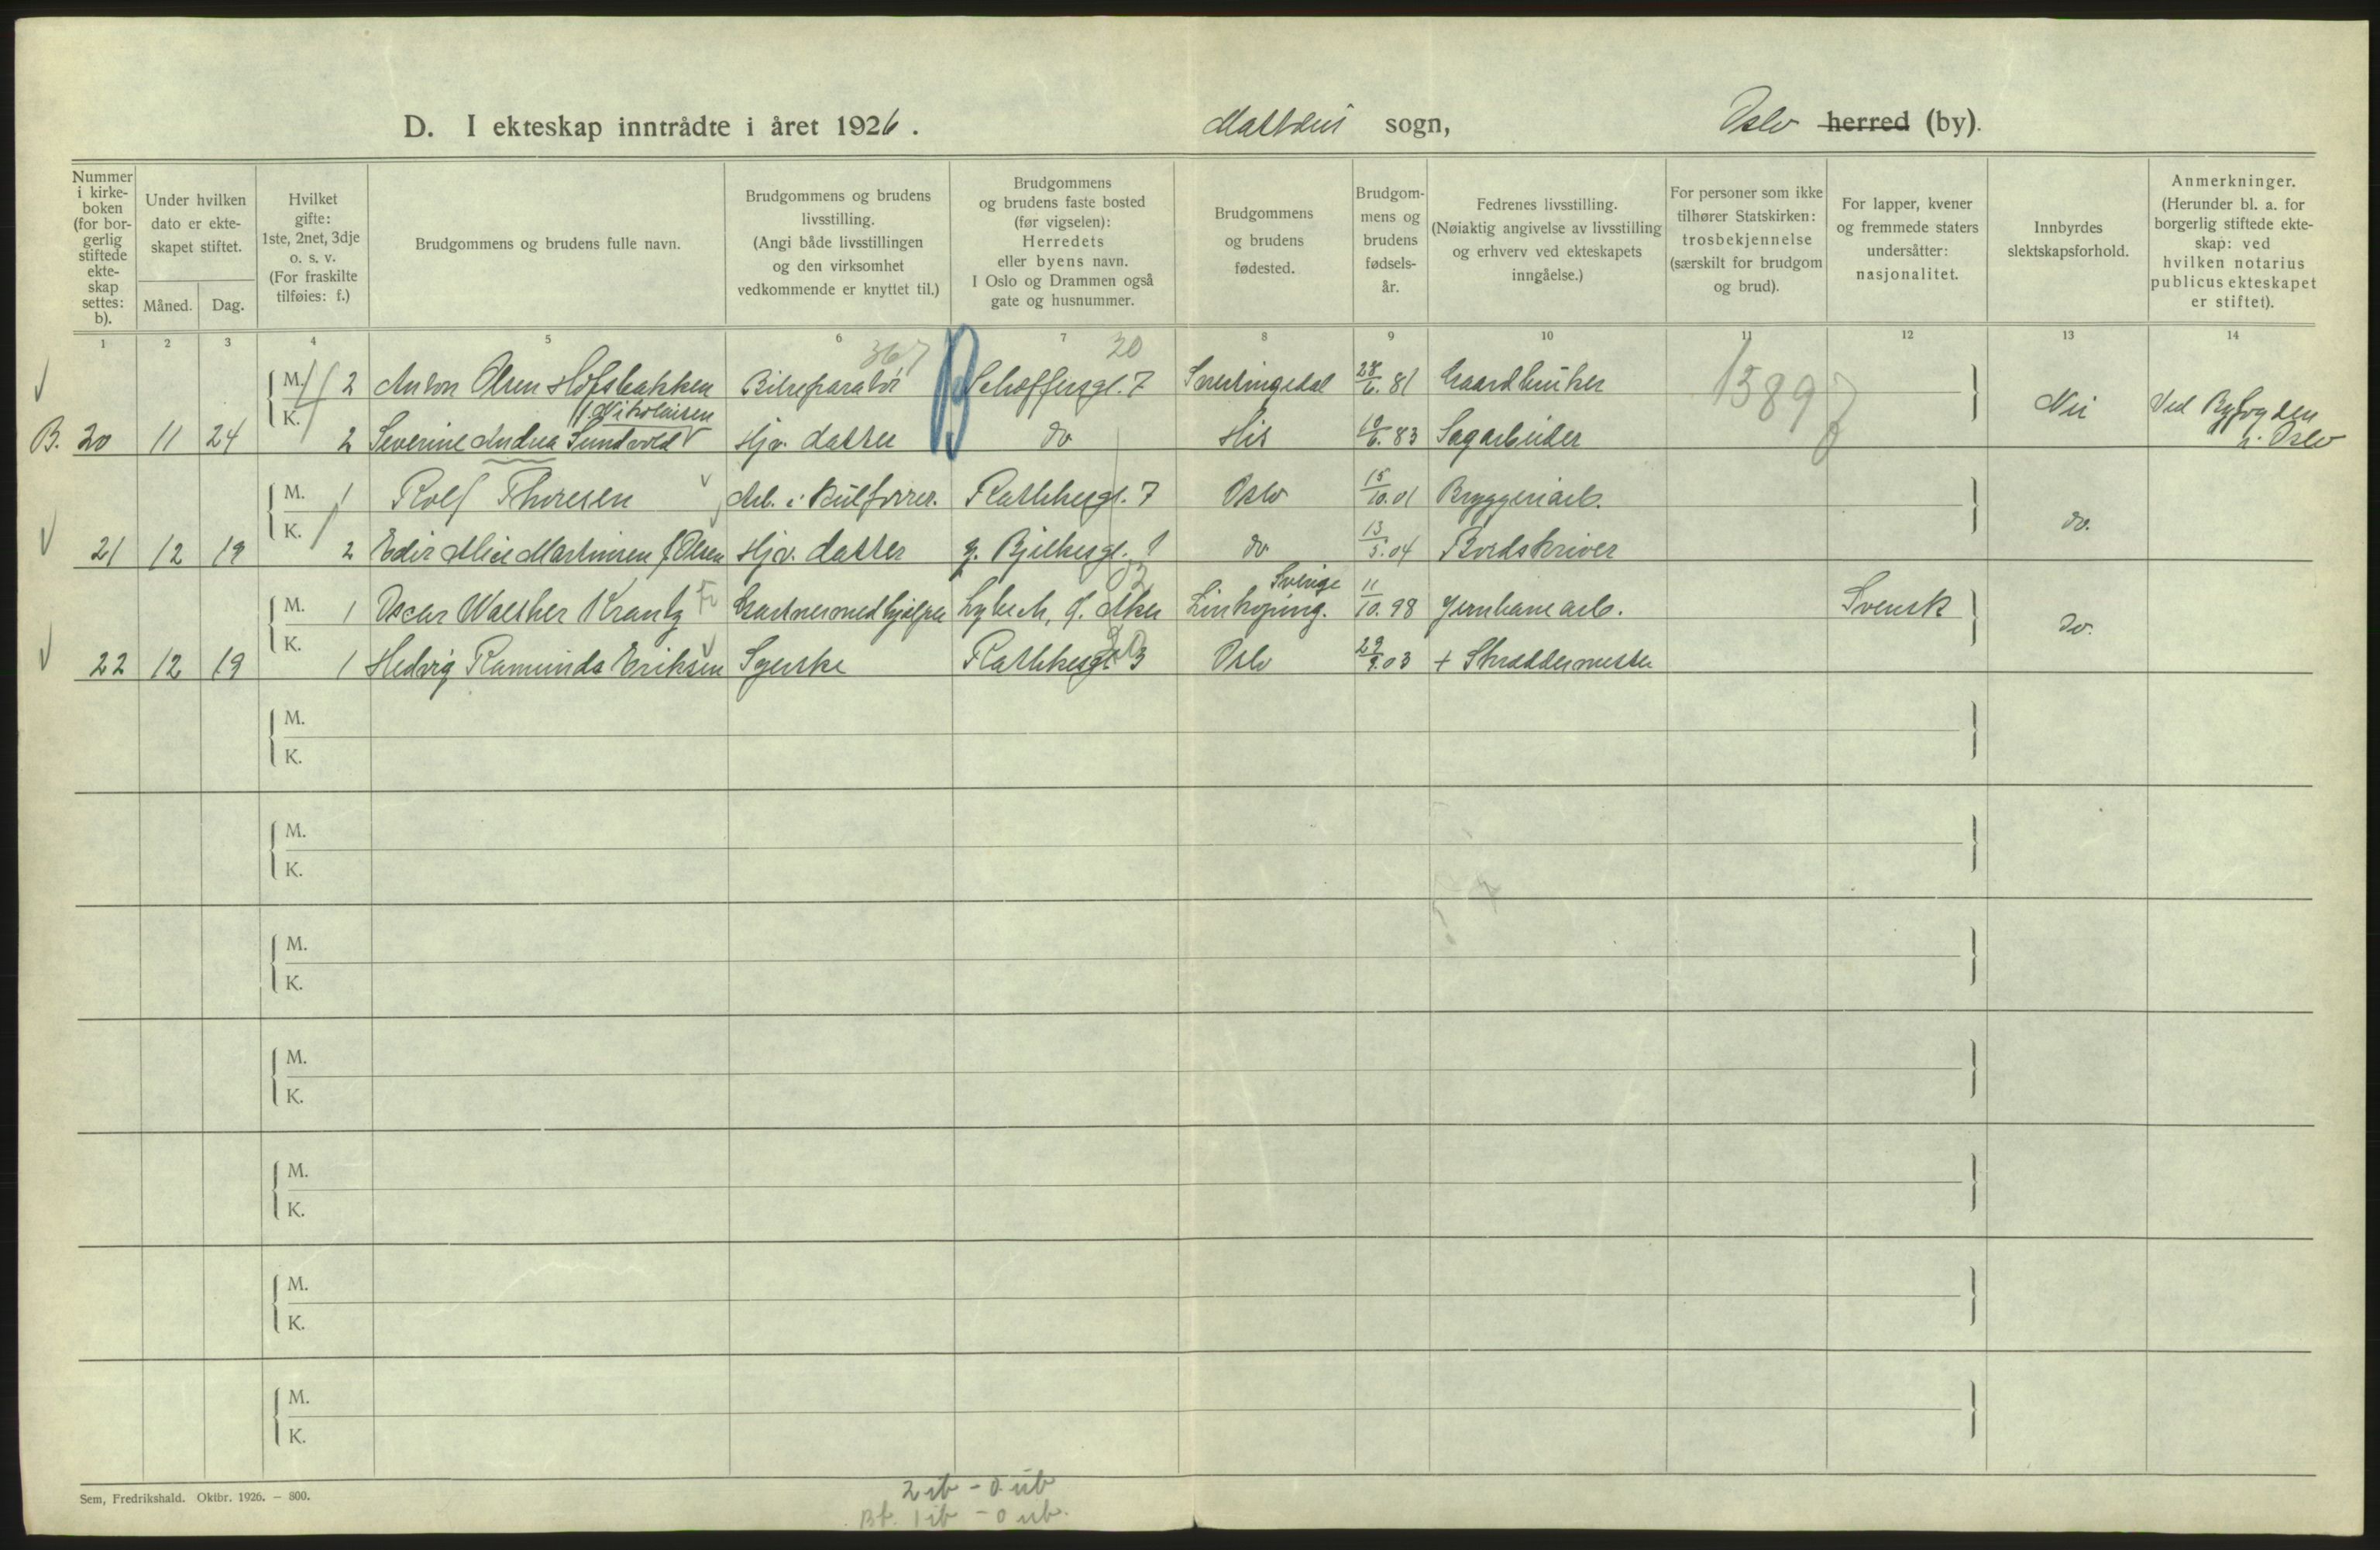 D. I ekteskap inntrådte i året 1926. Matteus sogn, Oslo herred (by).
Nummer i kirke-boken (for bor-gerlig stiftede ekte-skap settes: b).
Under hvilken dato er ekte-skapet stiftet.
Måned. Dag.
Hvilket gifte: 1ste, 2net, 3dje o. s. v. (For fraskilte tilføies: f.)
Brudgommens og brudens fulle navn.
Brudgommens og brudens livsstilling. (Angi både livsstillingen og den virksomhet vedkommende er knyttet til.)
Brudgommens og brudens faste bosted (før vigselen): Herredets eller byens navn. I Oslo og Drammen også gate og husnummer.
Brudgommens og brudens fødested.
Brudgom-mens og brudens fødsels-år.
Fedrenes livsstilling. (Nøiaktig angivelse av livsstilling og erhverv ved ekteskapets inngåelse.)
For personer som ikke tilhører Statskirken: trosbekjennelse (særskilt for brudgom og brud).
For lapper, kvener og fremmede staters undersåtter: nasjonalitet.
Innbyrdes slektskapsforhold.
Anmerkninger. (Herunder bl. a. for borgerlig stiftede ekte-skap: ved hvilken notarius publicus ekteskapet er stiftet).
1 2 3 4 5 6 7 8 9 10 11 12 13 14
367 20
M. 2 Anton Olsen Hofsbakken Bilreparatør Schoffersgt. 7 Snertingdal 28/6. 81 Gaardbruker 15897
f. Nikolaisen
B. 20 11 24 K. 2 Severine Andrea Sundvold Hjv. datter do His 19/6. 83 Sagarbeider Nei Ved Byfogden i Oslo
M. 1 Rolf Thoresen Arb. i Kulforrer. Rathkesgt. 7 Oslo 15/10. 01 Bryggeriarb.
21 12 19 K. 2 Edir Alice Martinsen f. Olsen Hjv. datter g. Bjelkesgt. 1 do 13/5. 04 Bordskriver do.
M. 1 Oscar Walther Krantz Gartnermedhjelper Lybeck, Ø. Aker Linkøping. Sverige 11/10. 98 Jernbanearb. Svensk
22 12 19 K. 1 Hedvig Ramunda Eriksen Syerske Rathkesgt. 3 Oslo 29/9. 03 + Skreddermester do.
M.
K.
M.
K.
M.
K.
M.
K.
M.
K.
M.
K.
M.
K.
Sem, Fredrikshald. Oktbr. 1926. — 800.
2 ib - 0 ub
Bf. 1 ib - 0 ub.